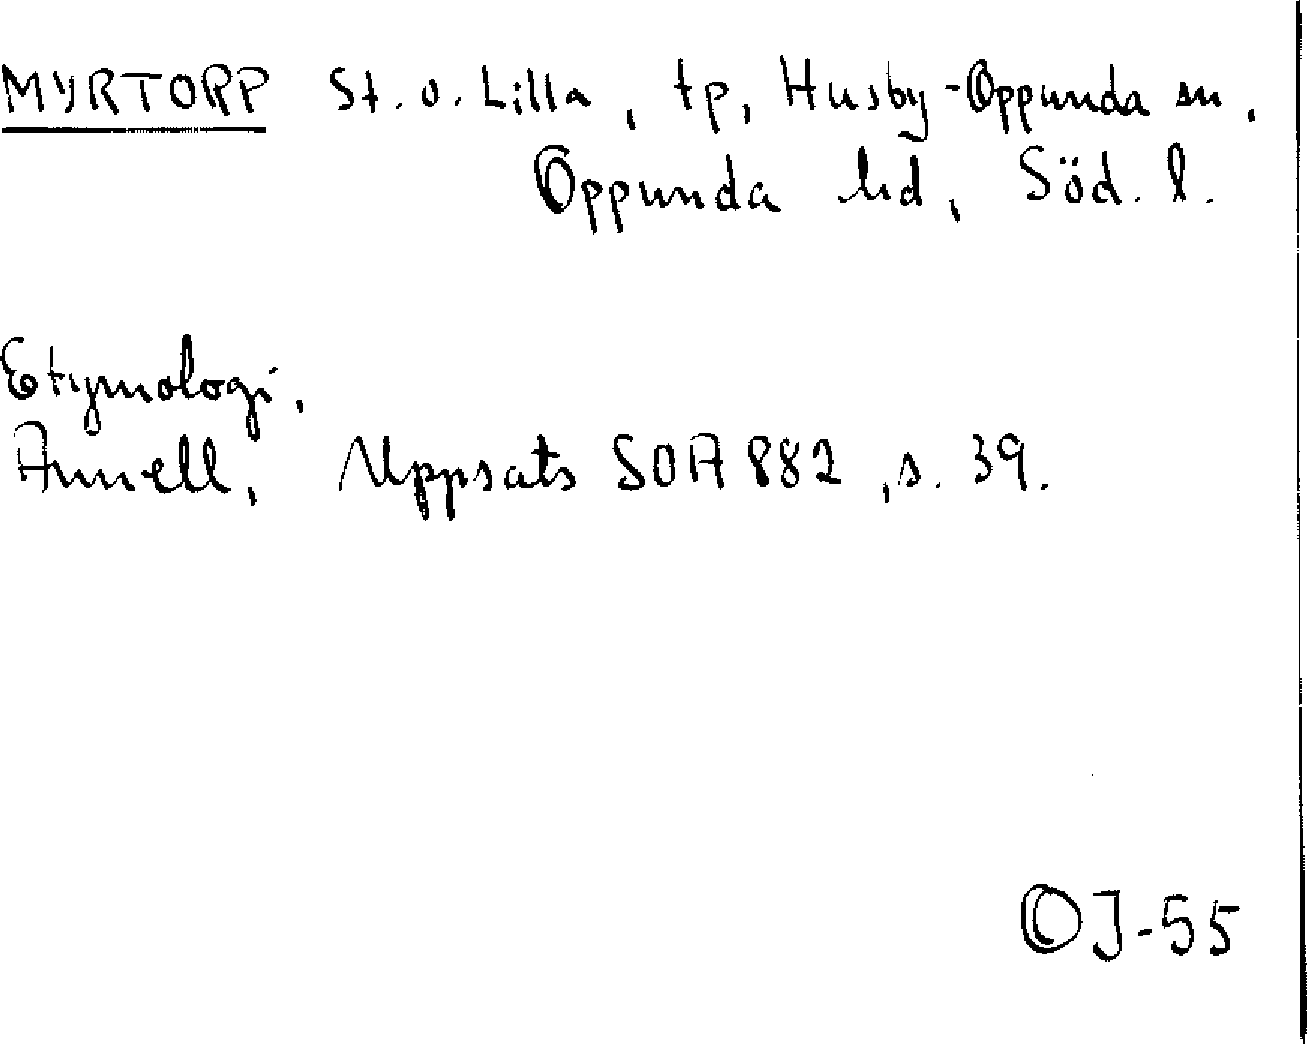 MYRTORP St. o. Lilla, tp, Husby-Oppunda sn.
Oppunda hd, Söd. l.
Etymologi.
Annell, Uppsats SOA 882, s. 39.
OJ-55